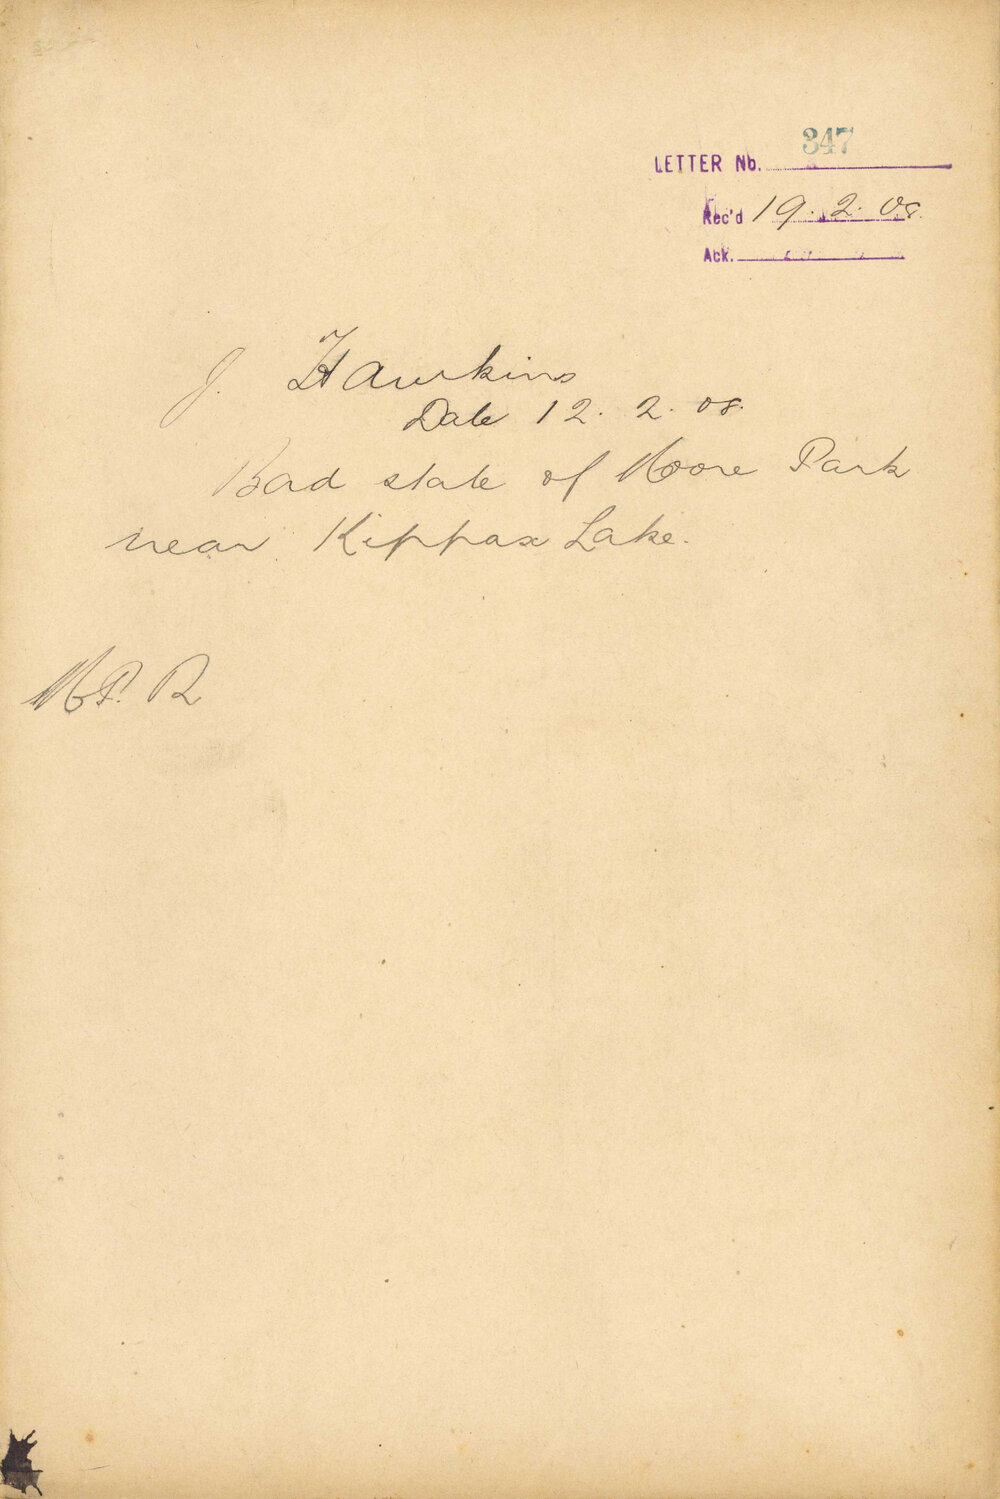 LETTER No. 347
Rec'd 19.2.08.
Ack.
J. Hawkins
Date 12.2.08.
Bad state of Moore Park
near Kippax Lake.
M.P. R